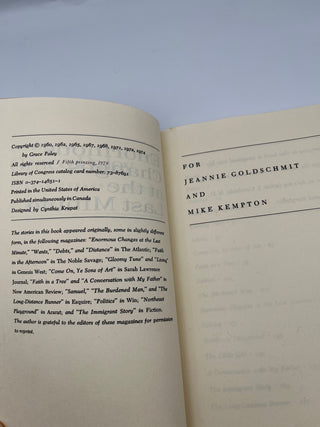 Copyright © 1960, 1962, 1965, 1967, 1968, 1971, 1972, 1974
by Grace Paley
All rights reserved / Fifth printing, 1979
Library of Congress catalog card number: 73-87691
ISBN 0-374-14851-1
Printed in the United States of America
Published simultaneously in Canada
Designed by Cynthia Krupat
The stories in this book appeared originally, some in slightly different
form, in the following magazines: "Enormous Changes at the Last
Minute," "Wants," "Debts," and "Distance" in The Atlantic; "Faith
in the Afternoon" in The Noble Savage; "Gloomy Tune" and "Living"
in Genesis West; "Come On, Ye Sons of Art" in Sarah Lawrence
Journal; "Faith in a Tree" and "A Conversation with My Father" in
New American Review, "Samuel," "The Burdened Man," and "The
Long-Distance Runner" in Esquire; "Politics" in Win; "Northeast
Playground" in Ararat; and "The Immigrant Story" in Fiction.
The author is grateful to the editors of these magazines for permission
to reprint.
FOR
JEANNIE GOLDSCHMIT
AND
MIKE KEMPTON